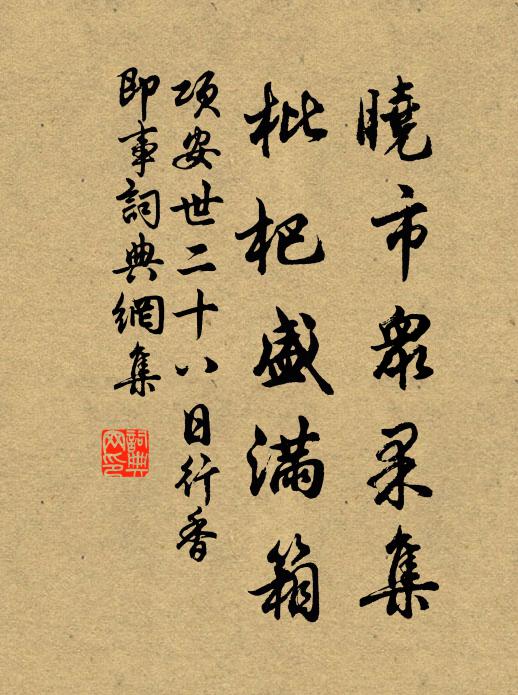 曉市眾果集
枇杷盛滿箱
項安世二十八日行香
即事詞典網集
詞典
网印